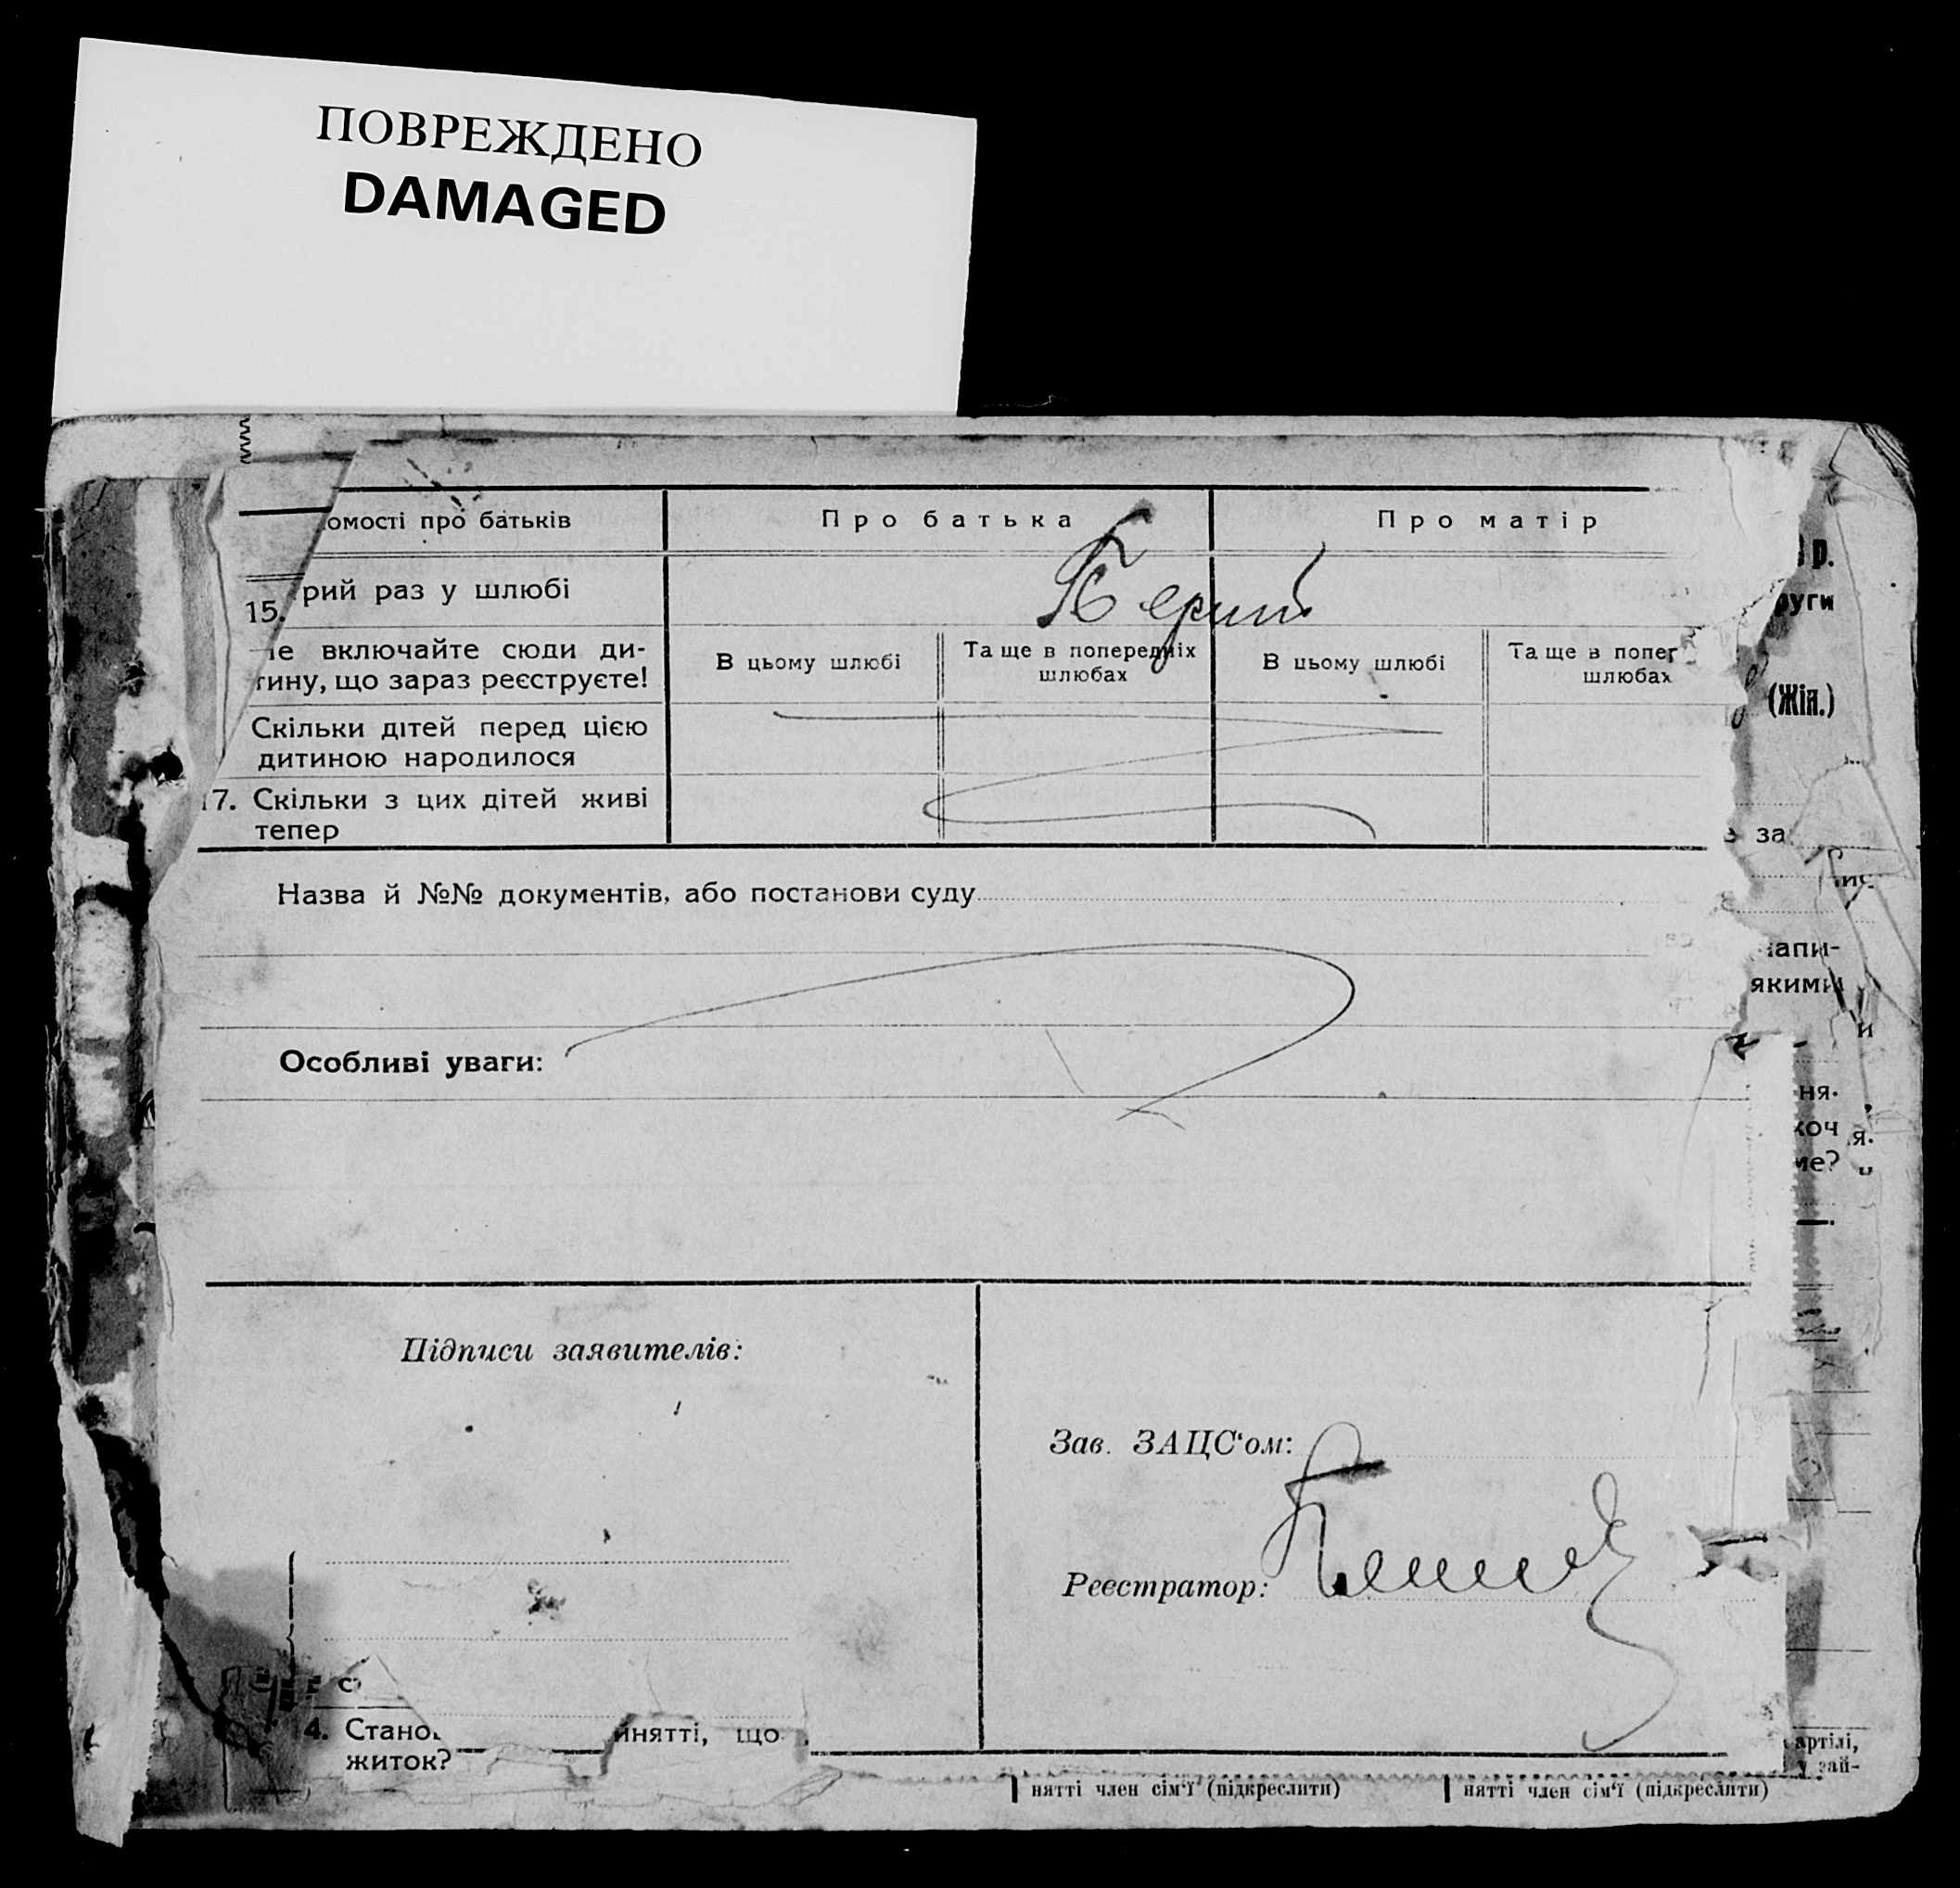 ПОВРЕЖДЕНО
DAMAGED
омості про батьків
Про батька
Про матір
15. рий раз у шлюбі
включайте сюди ди-
тину, що зараз реєструєте!
В цьому шлюбі
Та ще в попередніх
шлюбах
В цьому шлюбі
Та ще в попер
шлюбах
Скільки дітей перед цією
дитиною народилося
17. Скільки з цих дітей живі
тепер
Назва й №№ документів, або постанови суду
Особливі уваги:
Підписи заявителів:
Зав. ЗАЦС'ом:
Реєстратор:
4. Стано йнятті, що
житок?
нятті член сім'ї (підкреслити)
нятті член сім'ї (підкреслити)
р.
руги
(Жін.)
за
напи-
якими
ня.
хоч
ме?
артілі,
у зай-